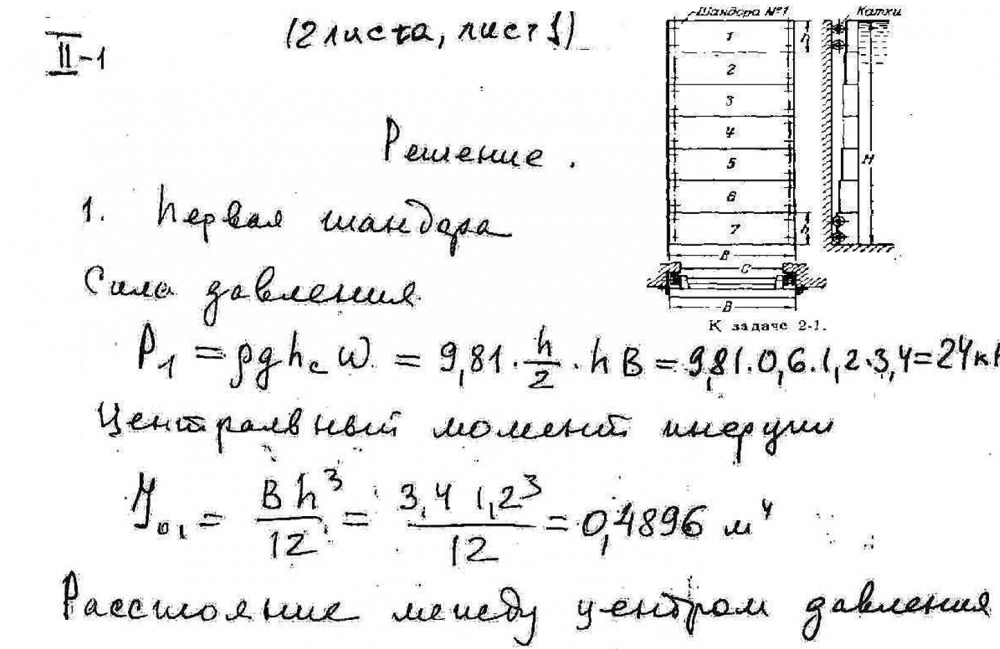 II-1
(2 листа, лист 1)
Решение.
1. Первая шандора
Сила давления
P₁ = ρghcω = 9,81·h/2·hB = 9,81·0,6·1,2·3,4=24к
Центральный момент инерции
J₀₁ = Bh³/12 = 3,4 1,2³/12 = 0,4896 м⁴
Расстояние между центром давления
Шандора №1
Катки
1
h
2
3
4
5
H
6
7
h
B
C
B
К задаче 2-1.